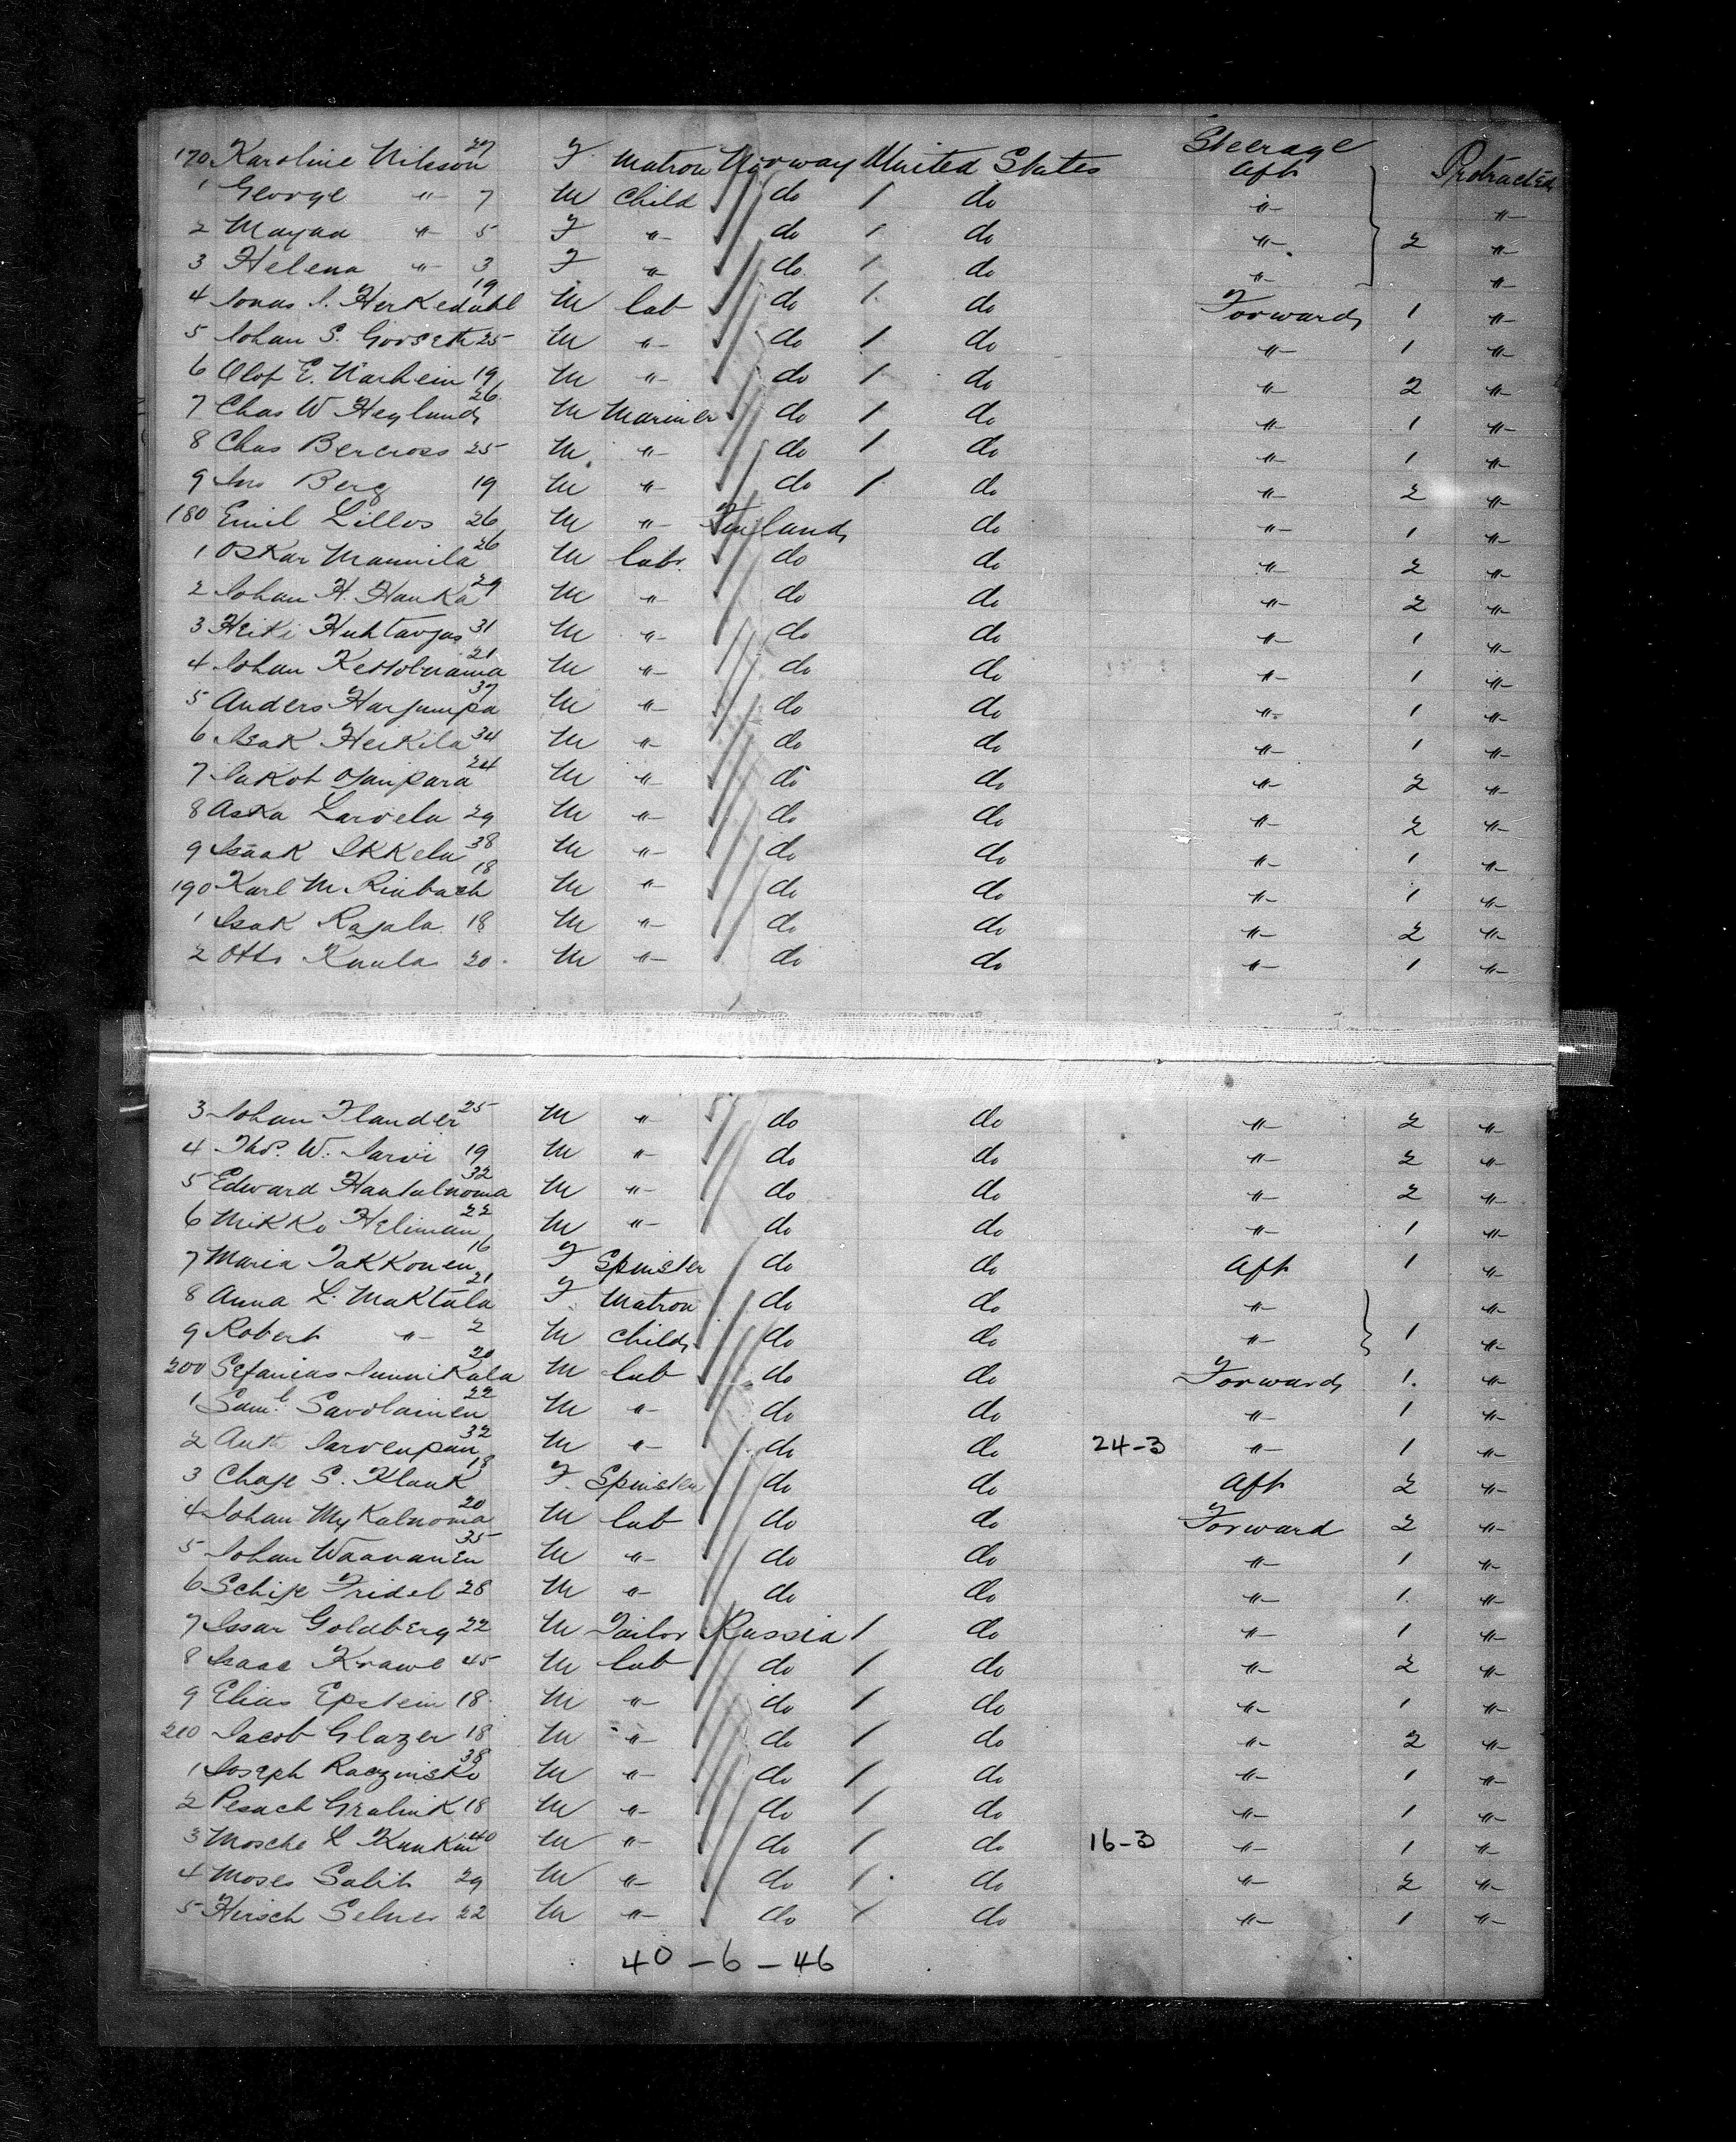 Steerage
170 Karoline Nilsson 27 F Matron Norway 1 United States Aft Protracted
1 George " 7 M Child do 1 do " "
2 " 5 F " do 1 do " 2 "
3 Helena " 3 F " do 1 do " "
4 Jonas J. Herkedahl 19 M lab do 1 do Forward 1 "
5 Johan S. Gorseth 25 M " do 1 do " 1 "
6 Olof E. Narheim 19 M " do 1 do " 2 "
7 Chas W Heylund 26 M Mariner do 1 do " 1 "
8 Chas Bercross 25 M " do 1 do " 1 "
9 Jno Berg 19 M " do 1 do " 2 "
180 Emil Lillos 26 M " Finland do " 1 "
1 Oskar Mannila 26 M labr do do " 2 "
2 Johan H. Hanka 29 M " do do " 2 "
3 Heiki 31 M " do do " 1 "
4 Johan 21 M " do do " 1 "
5 Anders Harjumpa 37 M " do do " 1 "
6 Isak Heikila 34 M " do do " 1 "
7 Jakob Ojanpara 24 M " do do " 2 "
8 Aska Larvela 29 M " do do " 2 "
9 Isaak Ikkela 38 M " do do " 1 "
190 Karl M. Rinbach 18 M " do do " 1 "
1 Isak Rajala 18 M " do do " 2 "
2 Otto Kaula 20 M " do do " 1 "
3 Johan Flander 25 M " do do " 2 "
4 Thos. W. Jarvi 19 M " do do " 2 "
5 Edward 32 M " do do " 2 "
6 Mikko Heliman 22 M " do do " 1 "
7 Maria Takkonen 16 F Spinster do do Aft 1 "
8 Anna L. Maktala 21 F Matron do do " "
9 Robert " 2 M Child do do " 1 "
200 Sefanias 20 M lab do do Forward 1 "
1 Saml Savolainen 22 M " do do " 1 "
2 Antti Jarvenpaa 32 M " do do 24-3 " 1 "
3 S. Klank 18 F Spinster do do Aft 2 "
4 Johan 20 M lab do do Forward 2 "
5 Johan Waananen 35 M " do do " 1 "
6 Fridel 28 M " do do " 1 "
7 Issar Goldberg 22 M Tailor Russia 1 do " 1 "
8 Isaac Krawe 45 M lab do 1 do " 2 "
9 Elias Epstein 18 M " do 1 do " 1 "
210 Jacob Glazer 18 M " do 1 do " 2 "
1 Joseph Raczinsko 38 M " do 1 do " 1 "
2 Pesach Gralnik 18 M " do 1 do " 1 "
3 Mosche L Kunkin 40 M " do 1 do 16-3 " 1 "
4 Moses Salit 29 M " do 1 do " 2 "
5 Hirsch 22 M " do 1 do " 1 "
40-6-46